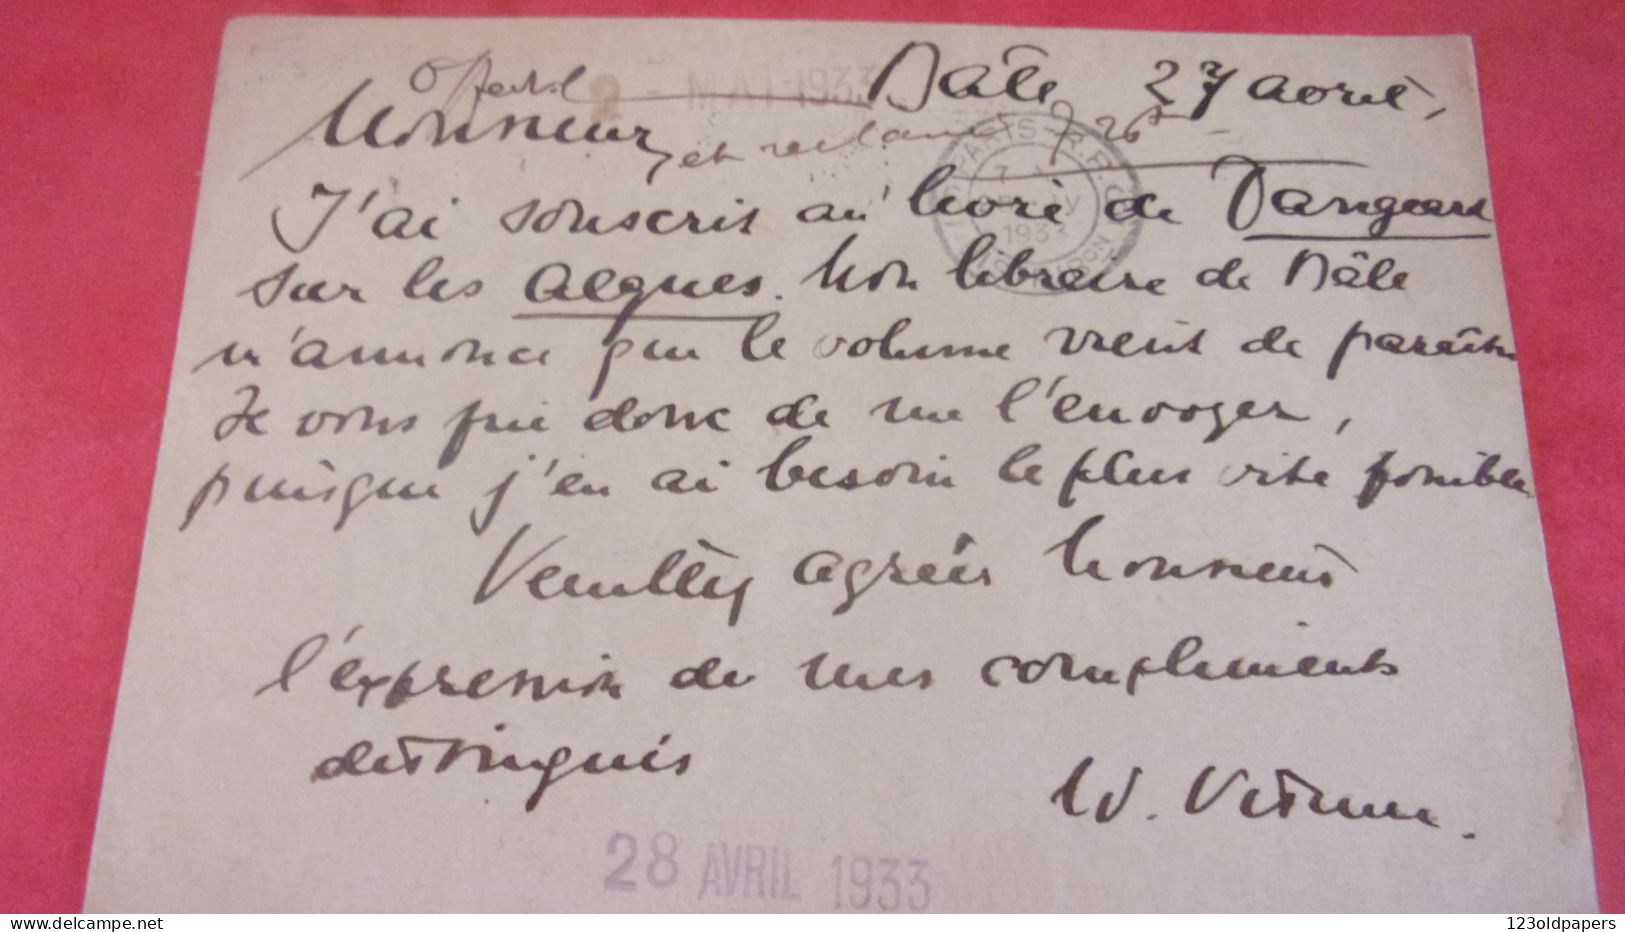 Bâle 27 avril,
2 - MAI 1933
Monsieur,
et réclamé
PARIS R.P.
1933
J'ai souscris au livre de Dangeard
sur les Algues. Mon libraire de Bâle
m'annonce que le volume vient de paraître
Je vous prie donc de me l'envoyer,
puisque j'en ai besoin le plus vite possible.
Veuillez agréer Monsieur
l'expression de mes compliments
distingués
W. Vischer.
28 AVRIL 1933
123oldpapers
www.delcampe.net